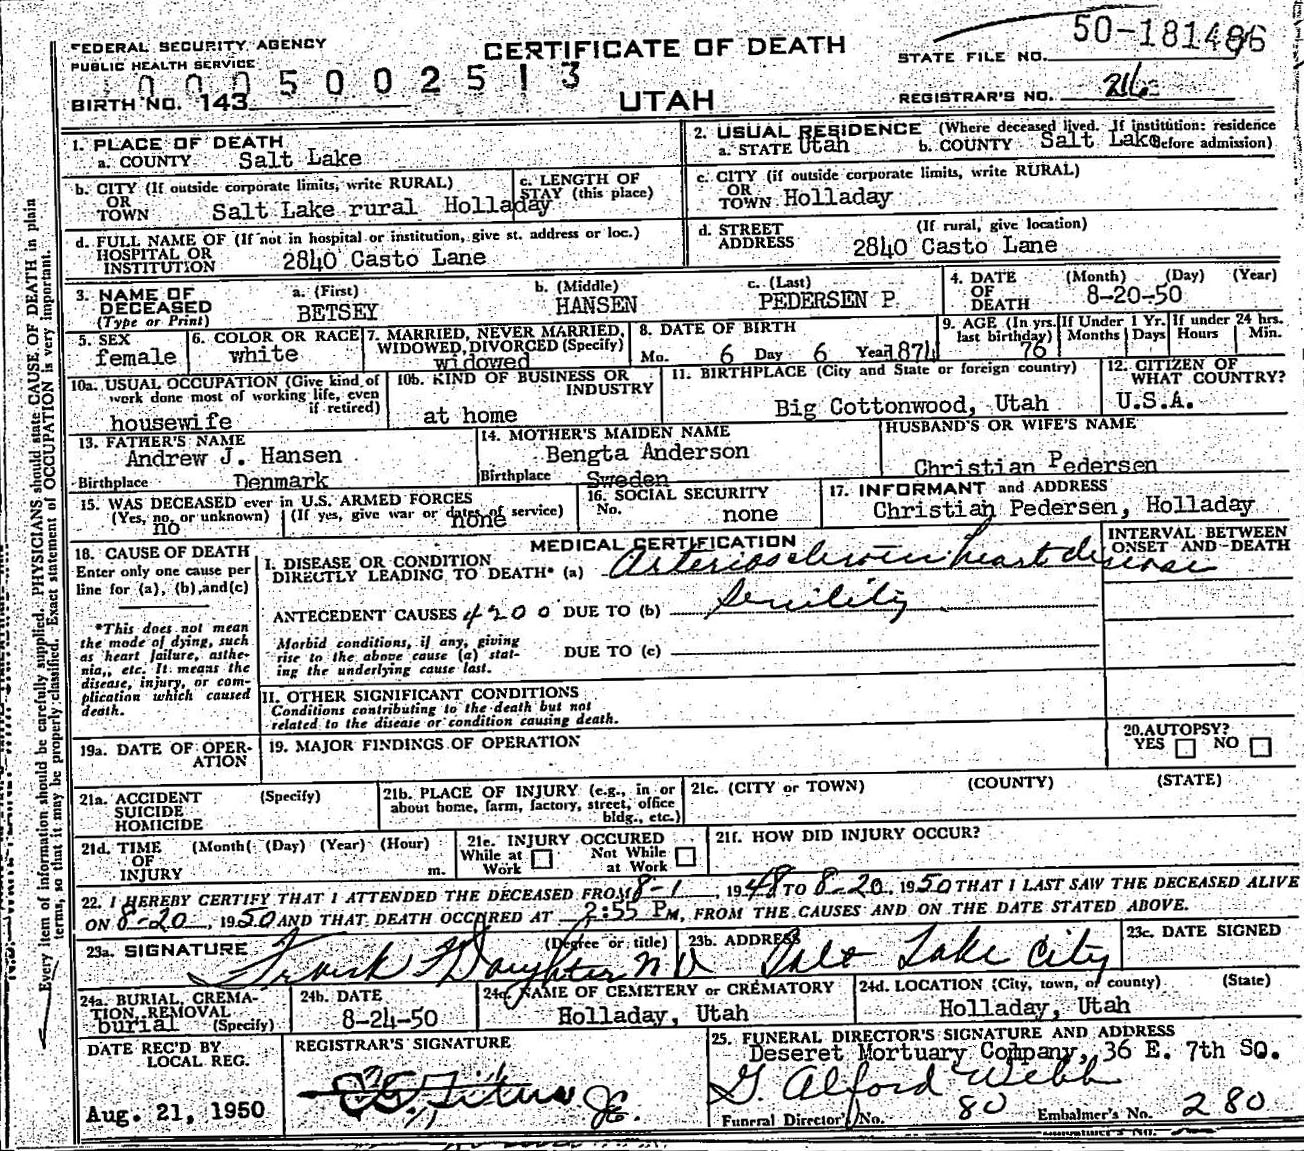 FEDERAL SECURITY AGENCY
PUBLIC HEALTH SERVICE
CERTIFICATE OF DEATH
UTAH
STATE FILE NO. 50-181486
0005002513
BIRTH NO. 143
REGISTRAR'S NO.
1. PLACE OF DEATH
a. COUNTY Salt Lake
2. USUAL RESIDENCE (Where deceased lived. If institution: residence before admission)
a. STATE Utah b. COUNTY Salt Lake
b. CITY (If outside corporate limits, write RURAL)
OR
TOWN Salt Lake rural Holladay
c. LENGTH OF
STAY (this place)
c. CITY (if outside corporate limits, write RURAL)
OR
TOWN Holladay
d. FULL NAME OF (If not in hospital or institution, give st. address or loc.)
HOSPITAL OR
INSTITUTION 2840 Casto Lane
d. STREET (If rural, give location)
ADDRESS 2840 Casto Lane
3. NAME OF
DECEASED
(Type or Print)
a. (First) b. (Middle) c. (Last)
BETSEY HANSEN PEDERSEN P.
4. DATE (Month) (Day) (Year)
OF
DEATH 8-20-50
5. SEX
female
6. COLOR OR RACE
white
7. MARRIED, NEVER MARRIED,
WIDOWED, DIVORCED (Specify)
widowed
8. DATE OF BIRTH
Mo. 6 Day 6 Year 1874
9. AGE (In yrs.
last birthday)
76
If Under 1 Yr.
Months Days
If under 24 hrs.
Hours Min.
10a. USUAL OCCUPATION (Give kind of
work done most of working life, even
if retired)
housewife
10b. KIND OF BUSINESS OR
INDUSTRY
at home
11. BIRTHPLACE (City and State or foreign country)
Big Cottonwood, Utah
12. CITIZEN OF
WHAT COUNTRY?
U.S.A.
13. FATHER'S NAME
Andrew J. Hansen
Birthplace Denmark
14. MOTHER'S MAIDEN NAME
Bengta Anderson
Birthplace Sweden
HUSBAND'S OR WIFE'S NAME
Christian Pedersen
15. WAS DECEASED ever in U.S. ARMED FORCES
(Yes, no, or unknown) (If yes, give war or dates of service)
no none
16. SOCIAL SECURITY
No. none
17. INFORMANT and ADDRESS
Christian Pedersen, Holladay
18. CAUSE OF DEATH
Enter only one cause per
line for (a), (b), and (c)
*This does not mean
the mode of dying, such
as heart failure, asthe-
nia,, etc. It means the
disease, injury, or com-
plication which caused
death.
MEDICAL CERTIFICATION
INTERVAL BETWEEN
ONSET AND DEATH
I. DISEASE OR CONDITION
DIRECTLY LEADING TO DEATH* (a) Arteriosclerotic heart disease
ANTECEDENT CAUSES 4200 DUE TO (b) Senility
Morbid conditions, if any, giving
rise to the above cause (a) stat-
ing the underlying cause last.
DUE TO (c)
II. OTHER SIGNIFICANT CONDITIONS
Conditions contributing to the death but not
related to the disease or condition causing death.
19a. DATE OF OPER-
ATION
19. MAJOR FINDINGS OF OPERATION
20. AUTOPSY?
YES NO
21a. ACCIDENT (Specify)
SUICIDE
HOMICIDE
21b. PLACE OF INJURY (e.g., in or
about home, farm, factory, street, office
bldg., etc.)
21c. (CITY or TOWN) (COUNTY) (STATE)
21d. TIME (Month( (Day) (Year) (Hour)
OF
INJURY m.
21e. INJURY OCCURED
While at Work Not While at Work
21f. HOW DID INJURY OCCUR?
22. I HEREBY CERTIFY THAT I ATTENDED THE DECEASED FROM 8-1, 1948 TO 8-20, 1950 THAT I LAST SAW THE DECEASED ALIVE
ON 8-20, 1950 AND THAT DEATH OCCURED AT 2:55 PM, FROM THE CAUSES AND ON THE DATE STATED ABOVE.
23a. SIGNATURE (Degree or title)
Frank Daughter M D
23b. ADDRESS
Salt Lake City
23c. DATE SIGNED
24a. BURIAL, CREMA-
TION, REMOVAL
burial (Specify)
24b. DATE
8-24-50
24c. NAME OF CEMETERY or CREMATORY
Holladay, Utah
24d. LOCATION (City, town, of county) (State)
Holladay, Utah
DATE REC'D BY
LOCAL REG.
Aug. 21, 1950
REGISTRAR'S SIGNATURE
25. FUNERAL DIRECTOR'S SIGNATURE AND ADDRESS
Deseret Mortuary Company, 36 E. 7th SO.
G. Alford Webb
Funeral Director No. 80 Embalmer's No. 280
Every item of information should be carefully supplied. PHYSICIANS should state CAUSE OF DEATH in plain
terms, so that it may be properly classified. Exact statement of OCCUPATION is very important.